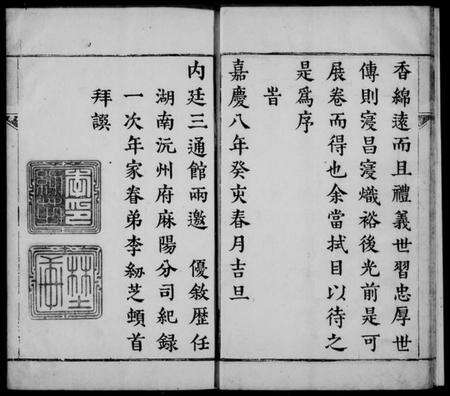 香綿遠而且禮義世習忠厚世
傳則寖昌寖熾裕後光前是可
展卷而得也余當拭目以待之
是爲序
旹
嘉慶八年癸亥春月吉旦
内廷三通館兩邀 優敘歷任
湖南沅州府麻陽分司紀録
一次年家眷弟李紉芝頓首
拜譔